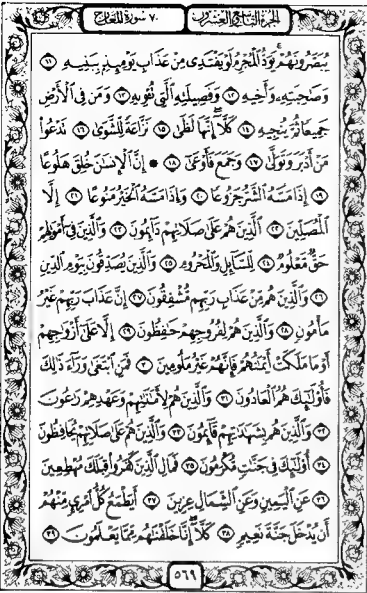 الجزء التاسع والعشرون ٧٠ سورة المعارج
يُبَصَّرُونَهُمْ يَوَدُّ الْمُجْرِمُ لَوْ يَفْتَدِى مِنْ عَذَابِ يَوْمِئِذٍ بِبَنِيهِ ١١
وَصَاحِبَتِهِ وَأَخِيهِ ١٢ وَفَصِيلَتِهِ الَّتِى تُؤْوِيهِ ١٣ وَمَن فِى الْأَرْضِ
جَمِيعًا ثُمَّ يُنجِيهِ ١٤ كَلَّا إِنَّهَا لَظَى ١٥ نَزَّاعَةً لِّلشَّوَى ١٦ تَدْعُوا
مَنْ أَدْبَرَ وَتَوَلَّى ١٧ وَجَمَعَ فَأَوْعَى ١٨ * إِنَّ الْإِنسَانَ خُلِقَ هَلُوعًا
١٩ إِذَا مَسَّهُ الشَّرُّ جَزُوعًا ٢٠ وَإِذَا مَسَّهُ الْخَيْرُ مَنُوعًا ٢١ إِلَّا
الْمُصَلِّينَ ٢٢ الَّذِينَ هُمْ عَلَى صَلَاتِهِمْ دَائِمُونَ ٢٣ وَالَّذِينَ فِى أَمْوَالِهِمْ
حَقٌّ مَّعْلُومٌ ٢٤ لِّلسَّائِلِ وَالْمَحْرُومِ ٢٥ وَالَّذِينَ يُصَدِّقُونَ بِيَوْمِ الدِّينِ
٢٦ وَالَّذِينَ هُم مِّنْ عَذَابِ رَبِّهِم مُّشْفِقُونَ ٢٧ إِنَّ عَذَابَ رَبِّهِمْ غَيْرُ
مَأْمُونٍ ٢٨ وَالَّذِينَ هُمْ لِفُرُوجِهِمْ حَافِظُونَ ٢٩ إِلَّا عَلَى أَزْوَاجِهِمْ
أَوْ مَا مَلَكَتْ أَيْمَانُهُمْ فَإِنَّهُمْ غَيْرُ مَلُومِينَ ٣٠ فَمَنِ ابْتَغَى وَرَاءَ ذَلِكَ
فَأُولَئِكَ هُمُ الْعَادُونَ ٣١ وَالَّذِينَ هُمْ لِأَمَانَاتِهِمْ وَعَهْدِهِمْ رَاعُونَ
٣٢ وَالَّذِينَ هُم بِشَهَادَاتِهِمْ قَائِمُونَ ٣٣ وَالَّذِينَ هُمْ عَلَى صَلَاتِهِمْ يُحَافِظُونَ
٣٤ أُولَئِكَ فِى جَنَّاتٍ مُّكْرَمُونَ ٣٥ فَمَالِ الَّذِينَ كَفَرُوا قِبَلَكَ مُهْطِعِينَ
٣٦ عَنِ الْيَمِينِ وَعَنِ الشِّمَالِ عِزِينَ ٣٧ أَيَطْمَعُ كُلُّ امْرِئٍ مِّنْهُمْ
أَن يُدْخَلَ جَنَّةَ نَعِيمٍ ٣٨ كَلَّا إِنَّا خَلَقْنَاهُم مِّمَّا يَعْلَمُونَ ٣٩
٥٦٩